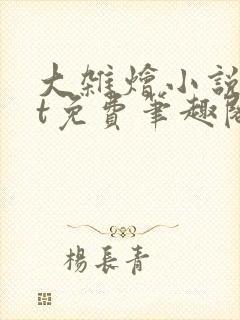 大雜燴小說
t免費筆趣閣
楊長青